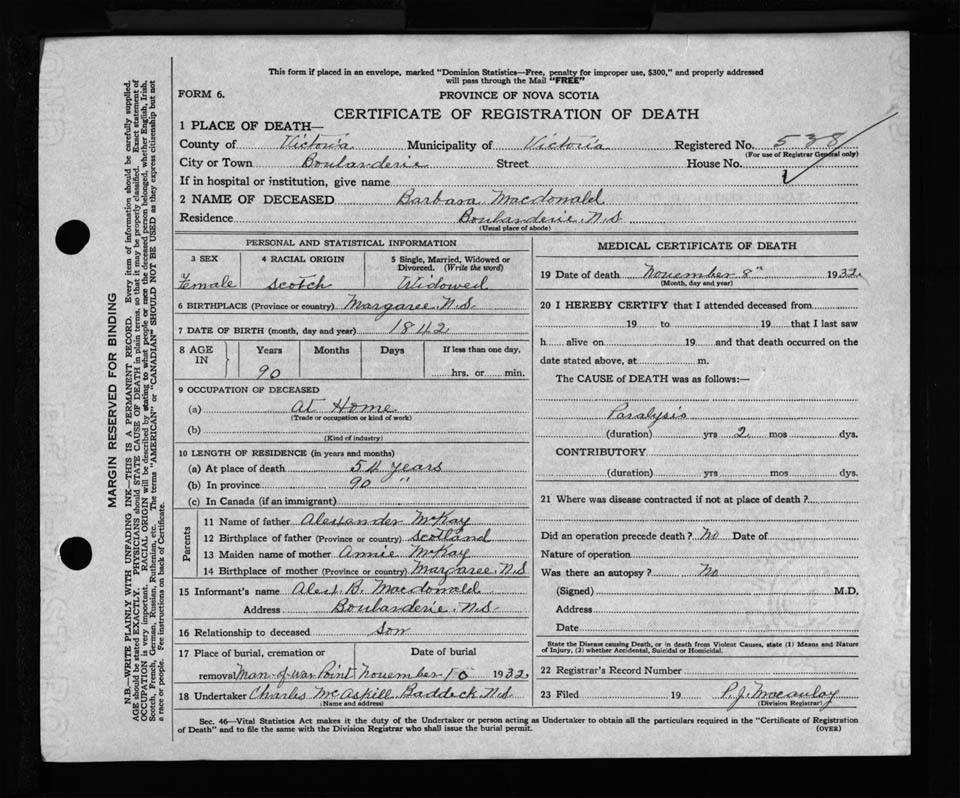 This form if placed in an envelope, marked "Dominion Statistics—Free, penalty for improper use, $300," and properly addressed
will pass through the Mail "FREE"
FORM 6.
PROVINCE OF NOVA SCOTIA
CERTIFICATE OF REGISTRATION OF DEATH
1 PLACE OF DEATH—
County of Victoria Municipality of Victoria Registered No. 538
(For use of Registrar General only)
City or Town Boulanderie Street House No.
If in hospital or institution, give name
2 NAME OF DECEASED Barbara Macdonald
Residence Boulanderie N.S
(Usual place of abode)
PERSONAL AND STATISTICAL INFORMATION
3 SEX 4 RACIAL ORIGIN 5 Single, Married, Widowed or
Divorced. (Write the word)
Female Scotch Widowed
6 BIRTHPLACE (Province or country) Margaree. N.S
7 DATE OF BIRTH (month, day and year) 1842
8 AGE IN Years Months Days If less than one day,
90 hrs. or min.
9 OCCUPATION OF DECEASED
(a) At Home
(Trade or occupation or kind of work)
(b)
(Kind of industry)
10 LENGTH OF RESIDENCE (in years and months)
(a) At place of death 54 years
(b) In province 90 "
(c) In Canada (if an immigrant)
Parents
11 Name of father Alexander McKay
12 Birthplace of father (Province or country) Scotland
13 Maiden name of mother Annie McKay
14 Birthplace of mother (Province or country) Margaree. N.S
15 Informant's name Alex. B. Macdonald
Address Boulanderie N.S
16 Relationship to deceased Son
17 Place of burial, cremation or Date of burial
removal Man-of-War Point November 10 1932
18 Undertaker Charles McAskill Baddeck N.S
(Name and address)
MEDICAL CERTIFICATE OF DEATH
19 Date of death November 8" 1932
(Month, day and year)
20 I HEREBY CERTIFY that I attended deceased from
19 to 19 that I last saw
h alive on 19 and that death occurred on the
date stated above, at m.
The CAUSE of DEATH was as follows:—
Paralysis
(duration) yrs 2 mos dys.
CONTRIBUTORY
(duration) yrs mos dys.
21 Where was disease contracted if not at place of death?
Did an operation precede death? No Date of
Nature of operation
Was there an autopsy? No
(Signed) M.D.
Address
Date
State the Disease causing Death, or in death from Violent Causes, state (1) Means and Nature
of Injury, (2) whether Accidental, Suicidal or Homicidal.
22 Registrar's Record Number
23 Filed 19 P.J. Macaulay
(Division Registrar)
Sec. 46—Vital Statistics Act makes it the duty of the Undertaker or person acting as Undertaker to obtain all the particulars required in the "Certificate of Registration
of Death" and to file the same with the Division Registrar who shall issue the burial permit. (OVER)
MARGIN RESERVED FOR BINDING
N.B.—WRITE PLAINLY WITH UNFADING INK—THIS IS A PERMANENT RECORD. Every item of information should be carefully supplied.
AGE should be stated EXACTLY. PHYSICIANS should STATE CAUSE OF DEATH in plain terms, so that it may be properly classified. Exact statement of
OCCUPATION is very important. RACIAL ORIGIN will be described by stating to what people or race the deceased person belonged, whether English, Irish,
Scotch, French, German, Russian, Ruthenian, etc. The terms "AMERICAN" or "CANADIAN" SHOULD NOT BE USED as they express citizenship but not
a race or people. Fee instructions on back of Certificate.